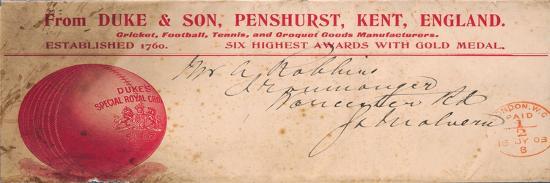 From DUKE & SON, PENSHURST, KENT, ENGLAND.
Cricket, Football, Tennis, and Croquet Goods Manufacturers.
ESTABLISHED 1760. SIX HIGHEST AWARDS WITH GOLD MEDAL.
Mr A Robbins
Ironmonger
Worcester Rd
Malvern
DUKES
SPECIAL ROYAL CRO
LONDON. W.C
PAID
1/2
JY 03
8